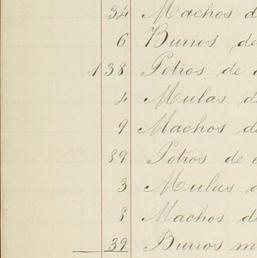 34 Machos d
6 Burros de
138 Potros de a
4 Mulas de
9 Machos de
89 Potros de a
3 Mulas d
8 Machos de
39 Burros m